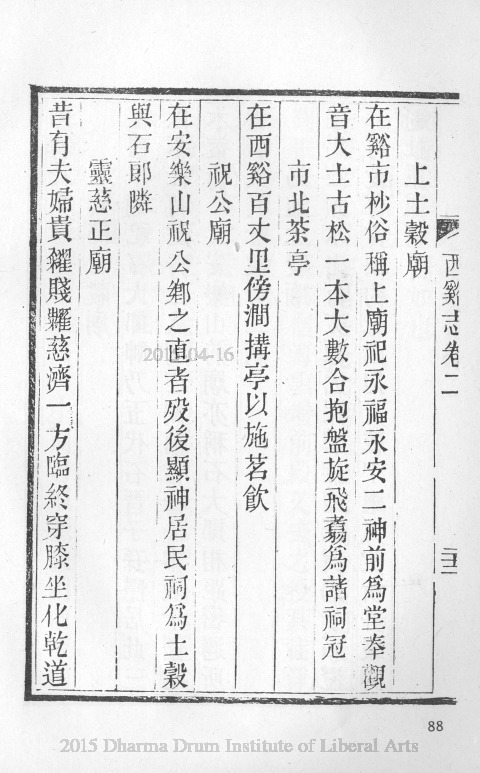 西谿志卷二
上土穀廟
在谿市杪俗稱上廟祀永福永安二神前為堂奉觀
音大士古松一本大數合抱盤旋飛翥為諸祠冠
市北茶亭
在西谿百丈里傍澗搆亭以施茗飲
祝公廟
在安樂山祝公鄉之直者歿後顯神居民祠為土穀
與石郎隣
靈慈正廟
昔有夫婦貴糴賤糶慈濟一方臨終穿膝坐化乾道
88
2015-04-16
2015 Dharma Drum Institute of Liberal Arts